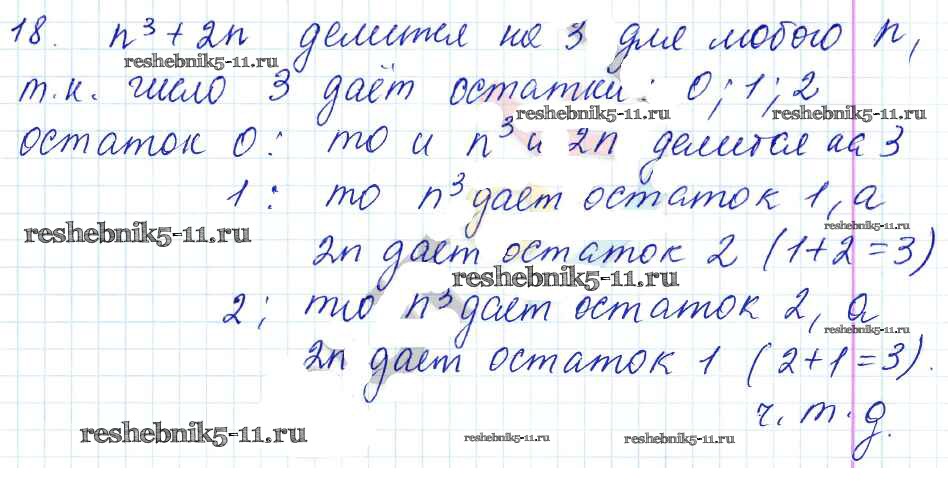 18. n³ + 2n делится на 3 для любого n,
reshebnik5-11.ru
т.к. число 3 даёт остатки: 0; 1; 2
reshebnik5-11.ru reshebnik5-11.ru
остаток 0: то и n³ и 2n делится на 3
1: то n³ дает остаток 1, а
reshebnik5-11.ru
2n дает остаток 2 (1+2=3)
reshebnik5-11.ru
2; то n³ дает остаток 2, а
reshebnik5-11.ru
2n дает остаток 1 (2+1=3).
ч. т. д.
reshebnik5-11.ru reshebnik5-11.ru reshebnik5-11.ru